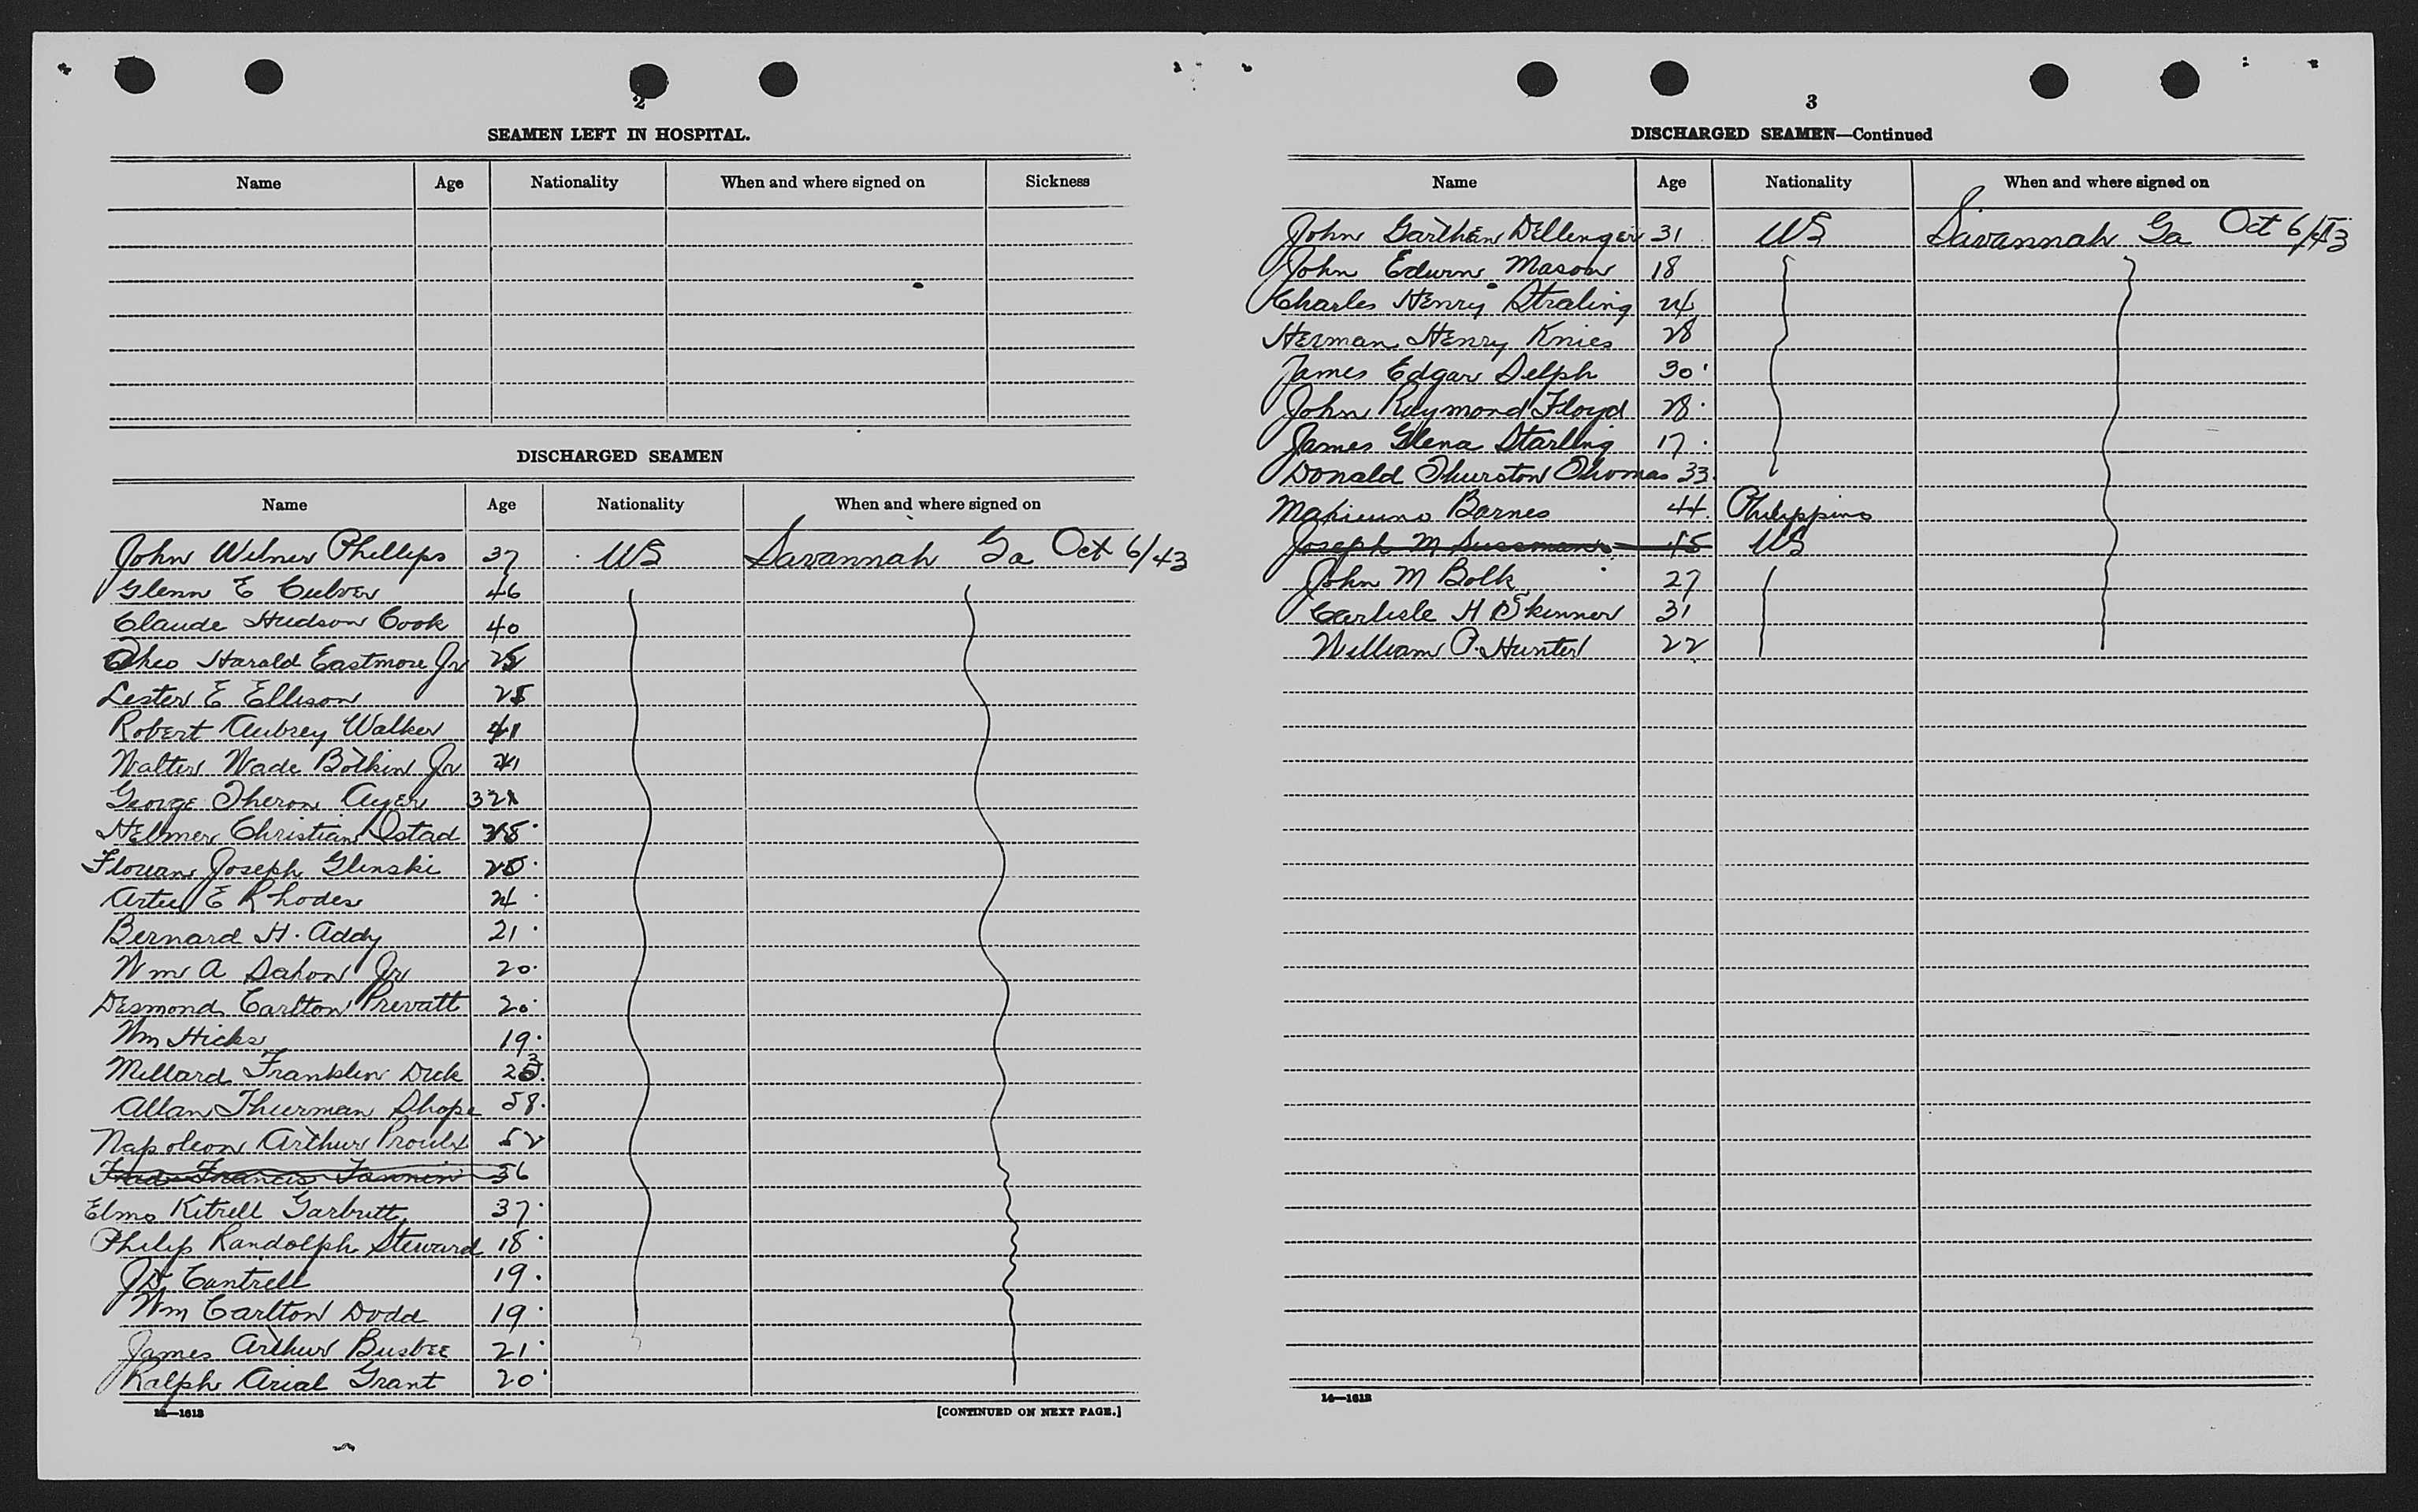 2
SEAMEN LEFT IN HOSPITAL.
Name Age Nationality When and where signed on Sickness
DISCHARGED SEAMEN
Name Age Nationality When and where signed on
John Wilner Phillips 37 US Savannah Ga Oct 6/43
Glenn E Culver 46
Claude Hudson Cook 40
Theo Harold Eastmore Jr
Lester E Ellison 25
Robert Aubrey Walker 41
Walter Wade Botkin Jr
George Theron Ayer
Helmer Christian Ostad
Florian Joseph Glinski
E Rhodes 24
Bernard H. Addy 21
Wm A Jr 20
Desmond Carlton Prevatt 20
Wm Hicks 19
Millard Franklin Dick
Allan Thurman Shope 58
Napoleon Arthur Proulx 52
Francis 56
Elmo Kitrell Garbutt 37
Philip Randolph Steward 18
JD Cantrell 19
Wm Carlton Dodd 19
James Arthur Busbee 21
Ralph Arial Grant 20
14—1613
[CONTINUED ON NEXT PAGE.]
3
DISCHARGED SEAMEN—Continued
Name Age Nationality When and where signed on
John Garthen Dellinger 31 US Savannah Ga Oct 6/43
John Edwin Mason 18
Charles Henry Straling 24
Herman Henry Knies 28
James Edgar Delph 30
John Raymond Floyd 28
James Glena Starling 17
Donald Thurston Thomas 33
Barnes 44 Philippino
Joseph M Sussman 45 US
John M Bolk 27
Carlisle H Skinner 31
William P. Hunter 22
14—1613